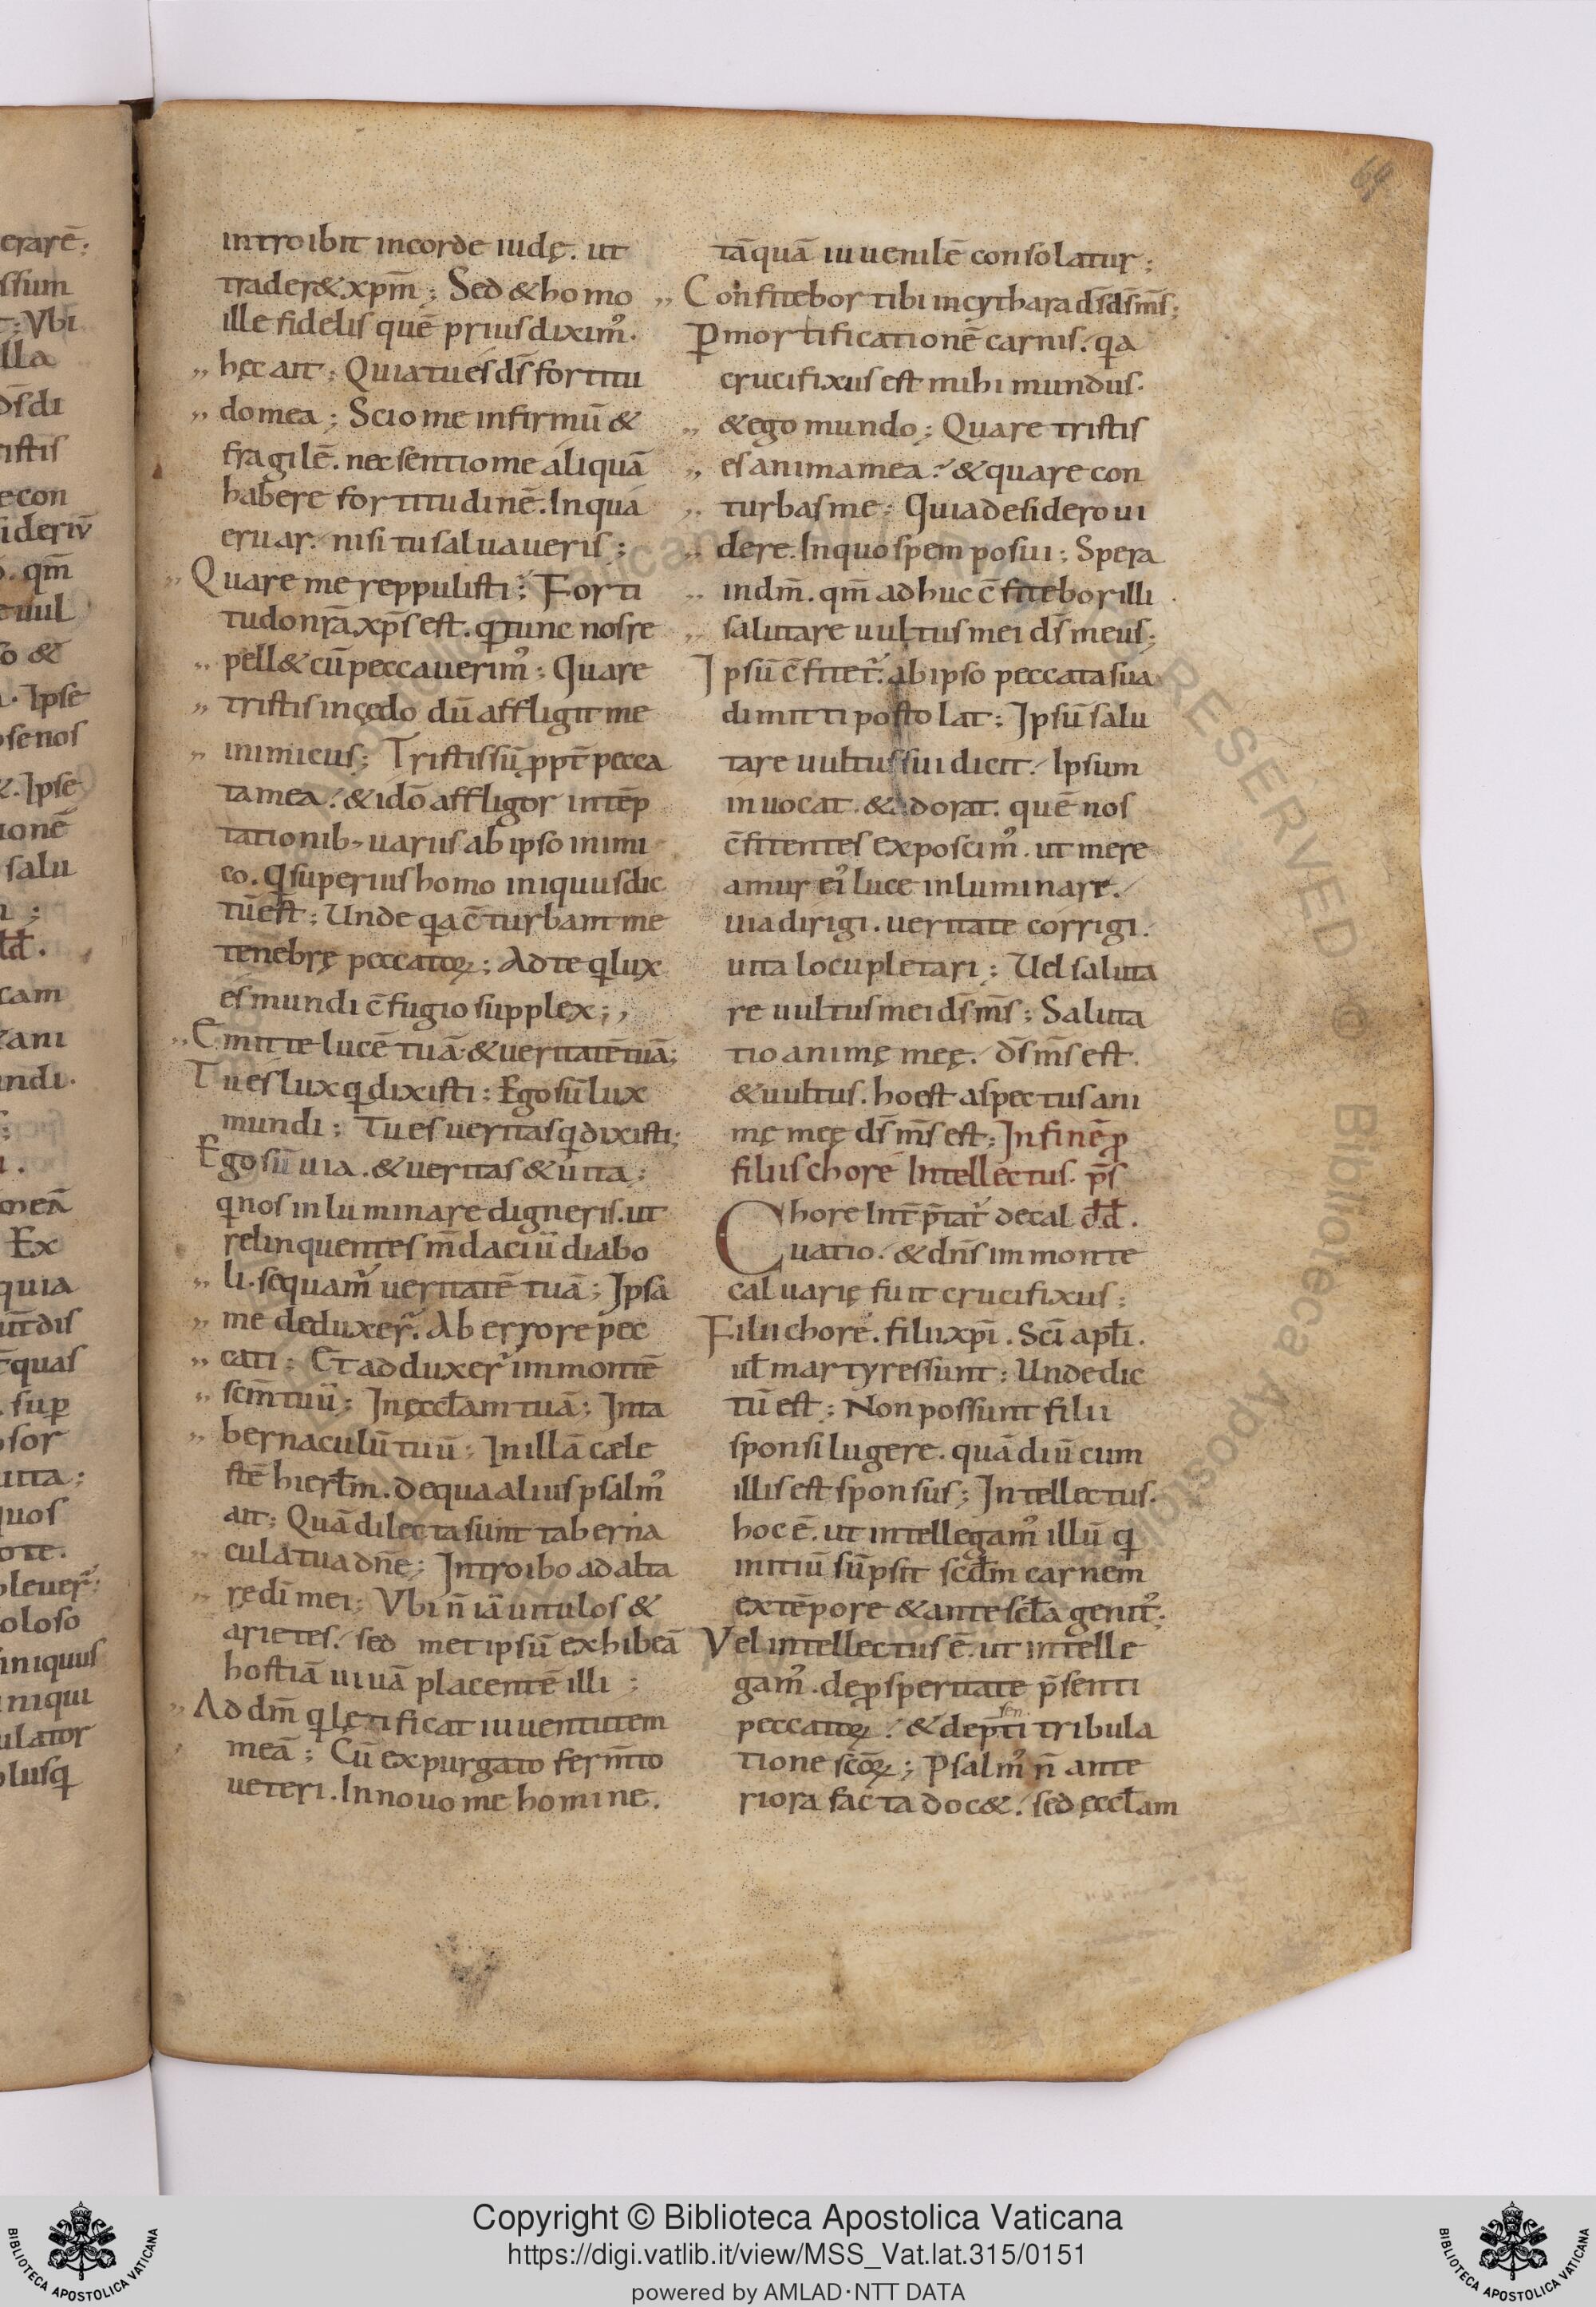 introibit incorde iudę. ut
trader& xpm̄; Sed & homo
ille fidelis quē prius dixim᾽.
„ hęc ait; Quia tu es ds̄ fortitu
„ do mea; Scio me infirmū &
fragilē. nec sentio me aliquā
habere fortitudinē. In qua
eruar. nisi tu salua ueris;
„ Quare me reppulisti; Forti
tudo nr̄a xp̄s est. q̄ tunc nos re
„ pell& cū peccauerim᾽; Quare
„ tristis incędo dū affligit me
„ inimicus; Tristis sū ppt̄ pecca
ta mea. & idō affligor in tēp
tationib; uariis ab ipso inimi
co. q̄ superius homo iniquus dic
tū est; Unde q̄a c̄turbant me
tenebrę peccatoꝝ; Ad te q̄ lux
es mundi c̄fugio supplex;,
„ Emitte lucē tuā & ueritatē tuā;
Tu es lux q̄ dixisti; Ego sū lux
mundi; Tu es ueritas q̄ dixisti;
Ego sū uia. & ueritas & uita;
q̄ nos inluminare digneris. ut
relinquentes m̄daciū diabo
„ li. sequam̄ ueritatē tuā; Ipsa
„ me deduxer̄. Ab errore pec
„ cati; Et adduxer̄ immontē
„ scm̄ tuū; In ęccłam tuā; In ta
„ bernaculū tuū; In illā cæle
stē hierłm. de qua alius psalm᾽
ait; Quā dilecta sunt taberna
„ cula tua dnē; Introibo ad alta
„ re dī mei; Vbi n̄ iā uitulos &
arietes. sed met ipsū exhibeā
hostiā uiuā placentē illi;
„ Ad dm̄ q̄ lętificat iuuentutem
meā; Cū expurgato ferm̄to
ueteri. In nouo me homine.
tāquā iuuenilē consolatur;
„ Confitebor tibi in cythara ds̄ ds̄ ms̄;
Ꝑ mortificationē carnis. q̄a
crucifixus est mihi mundus.
„ & ego mundo; Quare tristis
„ es anima mea? & quare con
„ turbas me; Quia desidero ui
„ dere. In quo spem posui; Spera
„ in dm̄. qm̄ adhuc c̄fitebor illi
„ salutare uultus mei ds̄ meus;
Ipsū c̄fitet̄. ab ipso peccata sua
dimitti postolat; Ipsū salu
tare uultus sui dicit. Ipsum
inuocat & adorat. quē nos
c̄fitentes exposcim᾽. ut mere
amur ei᾽ luce inluminare.
uia dirigi. ueritate corrigi.
uita locupletari; Uel saluta
re uultus mei ds̄ ms̄; Saluta
tio animę meę. ds̄ ms̄ est
& uultus. hoest aspectus ani
mę meę ds̄ ms̄ est; In finē ꝓ
filiis chore Intellectus. ps̄
Chore Int̄ p̄tat̄ decal dd̄.
uatio. & dn̄s im monte
caluarię fuit crucifixus;
Filii chore. filii xpī. Scī apłi.
uł martyres sunt; Unde dic
tū est; Non possunt filii
sponsi lugere. quādiū cum
illis est sponsus; Intellectus.
hoc ē. ut intellegam᾽ illū q̄
initiū sūpsit scdm̄ carnem
ex tēpore & ante scła genit᾽;
Vel intellectus ē. ut intelle
gam᾽. de ꝓsperitate p̄senti
peccatoꝝ. & de p̄ti tribula
sen
tione scōꝝ; Psalm᾽ n̄ ante
riora facta doc&. sed ęccłam
Copyright © Biblioteca Apostolica Vaticana
https://digi.vatlib.it/view/MSS_Vat.lat.315/0151
powered by AMLAD·NTT DATA